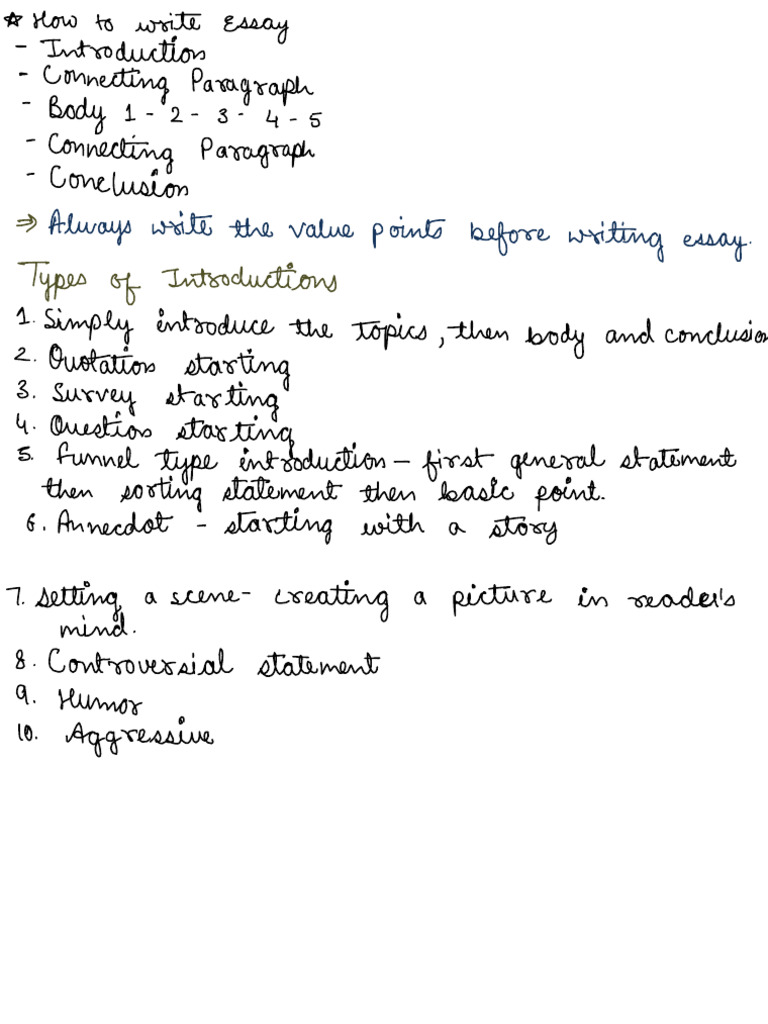 ☆ How to write Essay
- Introduction
- Connecting Paragraph
- Body 1 - 2 - 3 - 4 - 5
- Connecting Paragraph
- Conclusion
⇒ Always write the value points before writing essay.
Types of Introductions
1. Simply introduce the topics, then body and conclusion
2. Quotation starting
3. Survey starting
4. Question starting
5. Funnel type introduction – first general statement
then sorting statement then basic point.
6. Annecdot - starting with a story
7. Setting a scene - creating a picture in reader's
mind.
8. Controversial statement
9. Humor
10. Aggressive